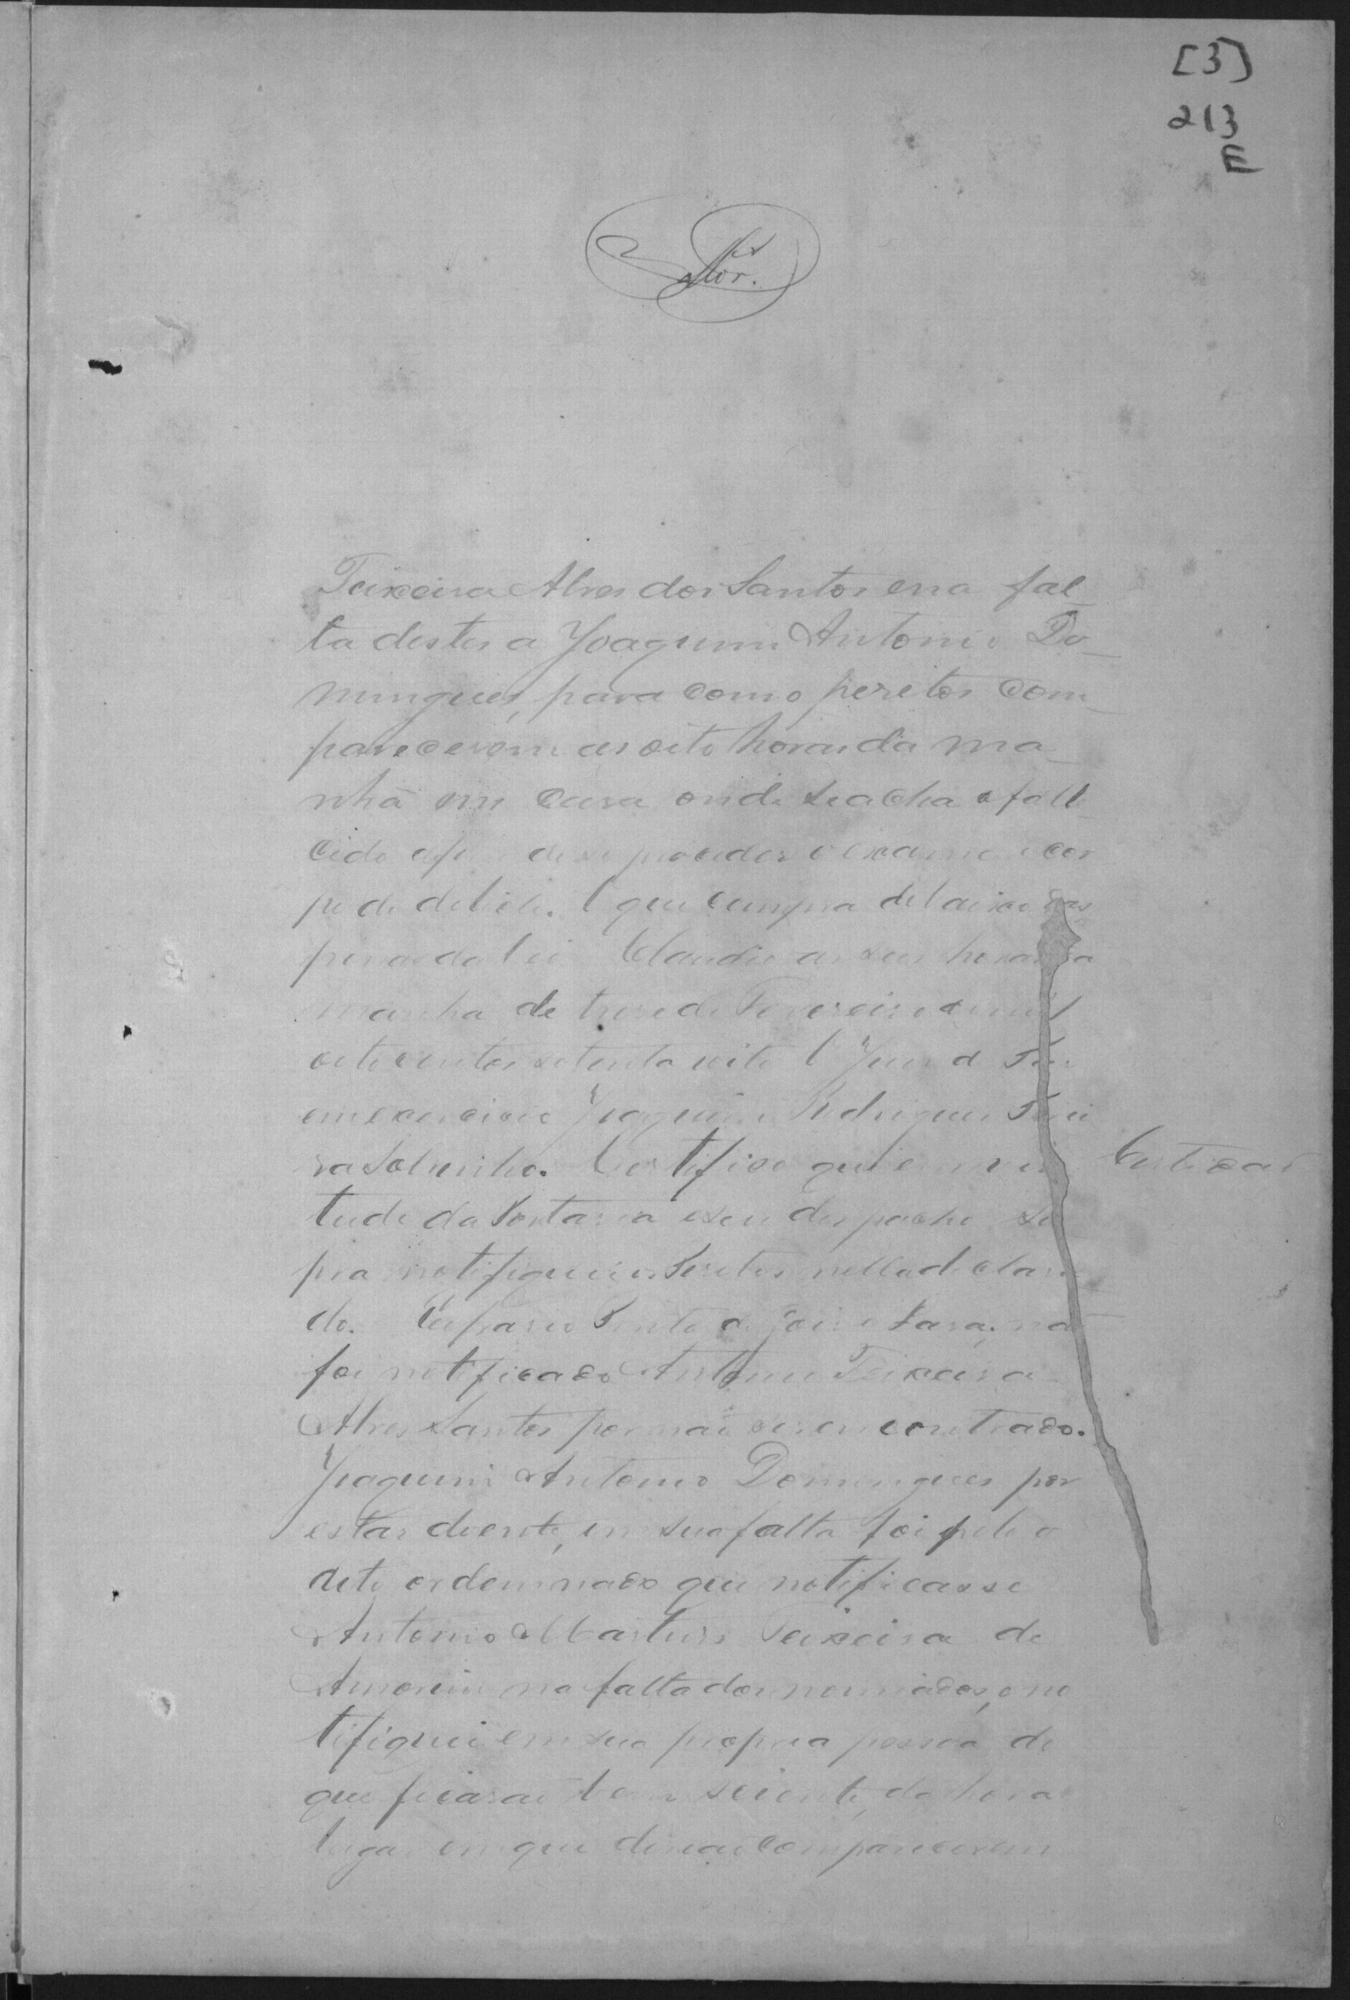 [3]
213
E
Teixeira Alves dos Santos e na fal_
ta destes a Joaquim Antonio Do_
mingues, para como peritos com_
parecerem as oito horas da ma_
nhã em casa onde se acha o falle
cido afim de se proceder o exame e cor
po de delicto. O que cumpra debaixo das
penas da lei. Claudio as seis horas da
manha de trese de Fevereiro de mil
oito centos setenta e oito O Juiz d
em exercicio Joaquim Rodrigues
ra Sobrinho. Certifico que em vir
Certidaõ
tude da Portaria e seu despacho su
pra notifiquei os Peritos nella declara
do. Pinto de naõ
foi notificado Antonio Teixeira
Alves Santos por naõ ser encontrado.
Joaquim Antonio Domingues por
estar doente, em sua falta foi pelo o
dito ordennado que notificasse
Antonio Martins Teixeira de
Amorim na falta dos nomiados, o no
tifiquei em sua propria pessoa de
que ficaraõ bem sciente, da hora
lugar em que deviaõ comparecerem